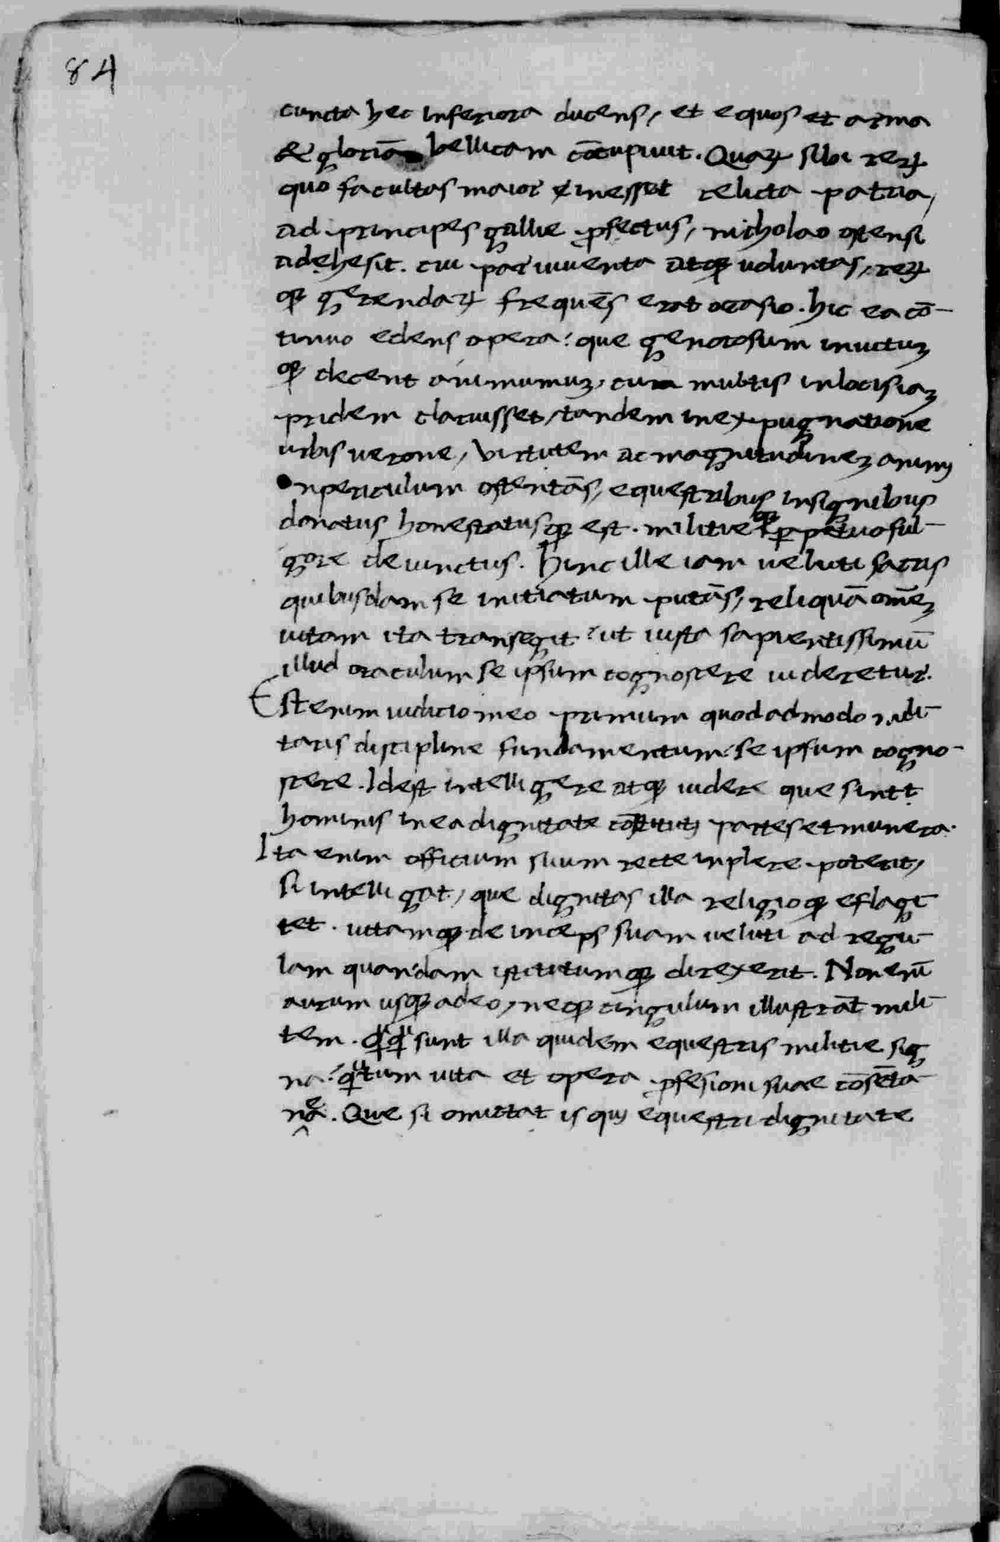 84
cuncta hec inferiora ducens, et equos et arma
& gloriā bellicam cōcupivit. Quaꝝ sibi reꝝ
quo facultas maior inesset relicta patria,
ad principes gallie ꝓfectus, nicholao ostensi
adehesit. cui par iuventa atqꝫ voluntas, reꝝ
qꝫ gerendaꝝ frequēs erat ocasio. hic ea cō-
tinuo edens opera: que generosum invictuꝫ
qꝫ decent animumuꝫ, cum multis in locis iaꝫ
pridem claruisset, tandem in expugnatione
urbis verone, virtutem ac magnitudineꝫ animj
in periculum ostentās, equestribus insignibus
donatus honestatusqꝫ est. militieqꝫ ꝑpetuo ful-
gore devinctus. Hinc ille iam veluti sacris
quibusdam se initiatum putās, reliquā omēꝫ
vitam ita transegit: ut iusta sapientissimū
illud oraculum se ipsum cognoscere videretur.
Est enim iudicio meo primum quodadmodo mili-
taris discipline fundamentum: se ipsum cogno-
scere. Idest intelligere atqꝫ videre que sint
hominis in ea dignitate cōstitutj partes et munera.
Ita enim officium suum recte inplere poterit,
si intelligat, que dignitas illa religioqꝫ eflagi-
tet. vitamqꝫ deinceps suam veluti ad regu-
lam quandam istitutumqꝫ direxerit. Non enī
aurum usqꝫ adeo, neqꝫ cingulum illustrāt mili-
tem. qꝫqꝫ sunt illa quidem equestris militie sig
na: qꝫtum vita et opera ꝓfesioni suae cōsētā-
nea. Que si omittat is quj equestri dignitate